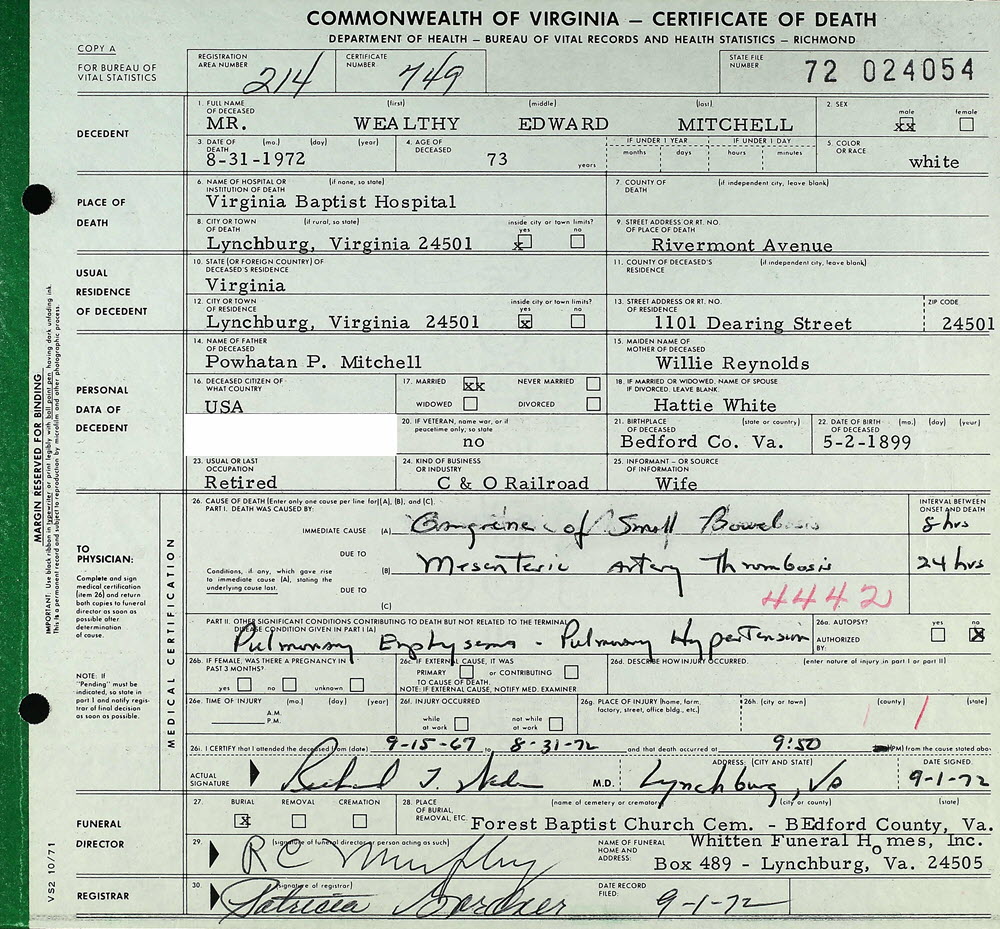 COMMONWEALTH OF VIRGINIA — CERTIFICATE OF DEATH
DEPARTMENT OF HEALTH — BUREAU OF VITAL RECORDS AND HEALTH STATISTICS — RICHMOND
COPY A
FOR BUREAU OF VITAL STATISTICS
REGISTRATION AREA NUMBER 214
CERTIFICATE NUMBER 749
STATE FILE NUMBER 72 024054
DECEDENT
1. FULL NAME OF DECEASED (first) (middle) (last)
MR. WEALTHY EDWARD MITCHELL
2. SEX male xx female
3. DATE OF DEATH (mo.) (day) (year)
8-31-1972
4. AGE OF DECEASED 73 years
IF UNDER 1 YEAR months days
IF UNDER 1 DAY hours minutes
5. COLOR OR RACE white
PLACE OF DEATH
6. NAME OF HOSPITAL OR INSTITUTION OF DEATH (if none, so state)
Virginia Baptist Hospital
7. COUNTY OF DEATH (if independent city, leave blank)
8. CITY OR TOWN OF DEATH (if rural, so state) inside city or town limits? yes no
Lynchburg, Virginia 24501 x
9. STREET ADDRESS OR RT. NO. OF PLACE OF DEATH
Rivermont Avenue
USUAL RESIDENCE OF DECEDENT
10. STATE (OR FOREIGN COUNTRY) OF DECEASED'S RESIDENCE
Virginia
11. COUNTY OF DECEASED'S RESIDENCE (if independent city, leave blank)
12. CITY OR TOWN OF RESIDENCE inside city or town limits? yes no
Lynchburg, Virginia 24501 x
13. STREET ADDRESS OR RT. NO. OF RESIDENCE
1101 Dearing Street
ZIP CODE 24501
PERSONAL DATA OF DECEDENT
14. NAME OF FATHER OF DECEASED
Powhatan P. Mitchell
15. MAIDEN NAME OF MOTHER OF DECEASED
Willie Reynolds
16. DECEASED CITIZEN OF WHAT COUNTRY
USA
17. MARRIED xx NEVER MARRIED
WIDOWED DIVORCED
18. IF MARRIED OR WIDOWED, NAME OF SPOUSE IF DIVORCED, LEAVE BLANK.
Hattie White
20. IF VETERAN, name war, or if peacetime only; so state
no
21. BIRTHPLACE OF DECEASED (state or country)
Bedford Co. Va.
22. DATE OF BIRTH OF DECEASED (mo.) (day) (year)
5-2-1899
23. USUAL OR LAST OCCUPATION
Retired
24. KIND OF BUSINESS OR INDUSTRY
C & O Railroad
25. INFORMANT - OR SOURCE OF INFORMATION
Wife
MARGIN RESERVED FOR BINDING
IMPORTANT: Use black ribbon in typewriter or print legibly with ball point pen having dark unfading ink.
This is a permanent record and subject to reproduction by microfilm and other photographic process.
VS2 10/71
TO PHYSICIAN:
Complete and sign medical certification (item 26) and return both copies to funeral director as soon as possible after determination of cause.
NOTE: If "Pending" must be indicated, so state in part I and notify registrar of final decision as soon as possible.
MEDICAL CERTIFICATION
26. CAUSE OF DEATH (Enter only one cause per line for (A), (B), and (C).
PART I. DEATH WAS CAUSED BY:
INTERVAL BETWEEN ONSET AND DEATH
IMMEDIATE CAUSE (A) Gangrene of Small Bowel 8 hrs
DUE TO
Conditions, if any, which gave rise to immediate cause (A), stating the underlying cause last.
(B) Mesenteric Artery Thrombosis 24 hrs
DUE TO
(C)
4442
PART II. OTHER SIGNIFICANT CONDITIONS CONTRIBUTING TO DEATH BUT NOT RELATED TO THE TERMINAL DISEASE CONDITION GIVEN IN PART I (A)
Pulmonary Emphysema - Pulmonary Hypertension
26a. AUTOPSY? yes no x
AUTHORIZED BY:
26b. IF FEMALE, WAS THERE A PREGNANCY IN PAST 3 MONTHS?
yes no unknown
26c. IF EXTERNAL CAUSE, IT WAS
PRIMARY or CONTRIBUTING
TO CAUSE OF DEATH.
NOTE: IF EXTERNAL CAUSE, NOTIFY MED. EXAMINER
26d. DESCRIBE HOW INJURY OCCURRED. (enter nature of injury in part I or part II)
26e. TIME OF INJURY (mo.) (day) (year)
A.M.
P.M.
26f. INJURY OCCURRED
while at work not while at work
26g. PLACE OF INJURY (home, farm, factory, street, office bldg., etc.)
26h. (city or town) (county) (state)
26i. I CERTIFY that I attended the deceased from (date) 9-15-67 to 8-31-72 and that death occurred at 9:50 (PM) from the cause stated abo
ACTUAL SIGNATURE Richard T. M.D.
ADDRESS: (CITY AND STATE)
Lynchburg, Va
DATE SIGNED.
9-1-72
FUNERAL DIRECTOR
27. BURIAL REMOVAL CREMATION
x
28. PLACE OF BURIAL, REMOVAL, ETC. (name of cemetery or crematory) (city or county) (state)
Forest Baptist Church Cem. - BEdford County, Va.
29. (signature of funeral director or person acting as such)
R C Murphy
NAME OF FUNERAL HOME AND ADDRESS:
Whitten Funeral Homes, Inc.
Box 489 - Lynchburg, Va. 24505
REGISTRAR
30. (signature of registrar)
Patricia Gordner
DATE RECORD FILED:
9-1-72